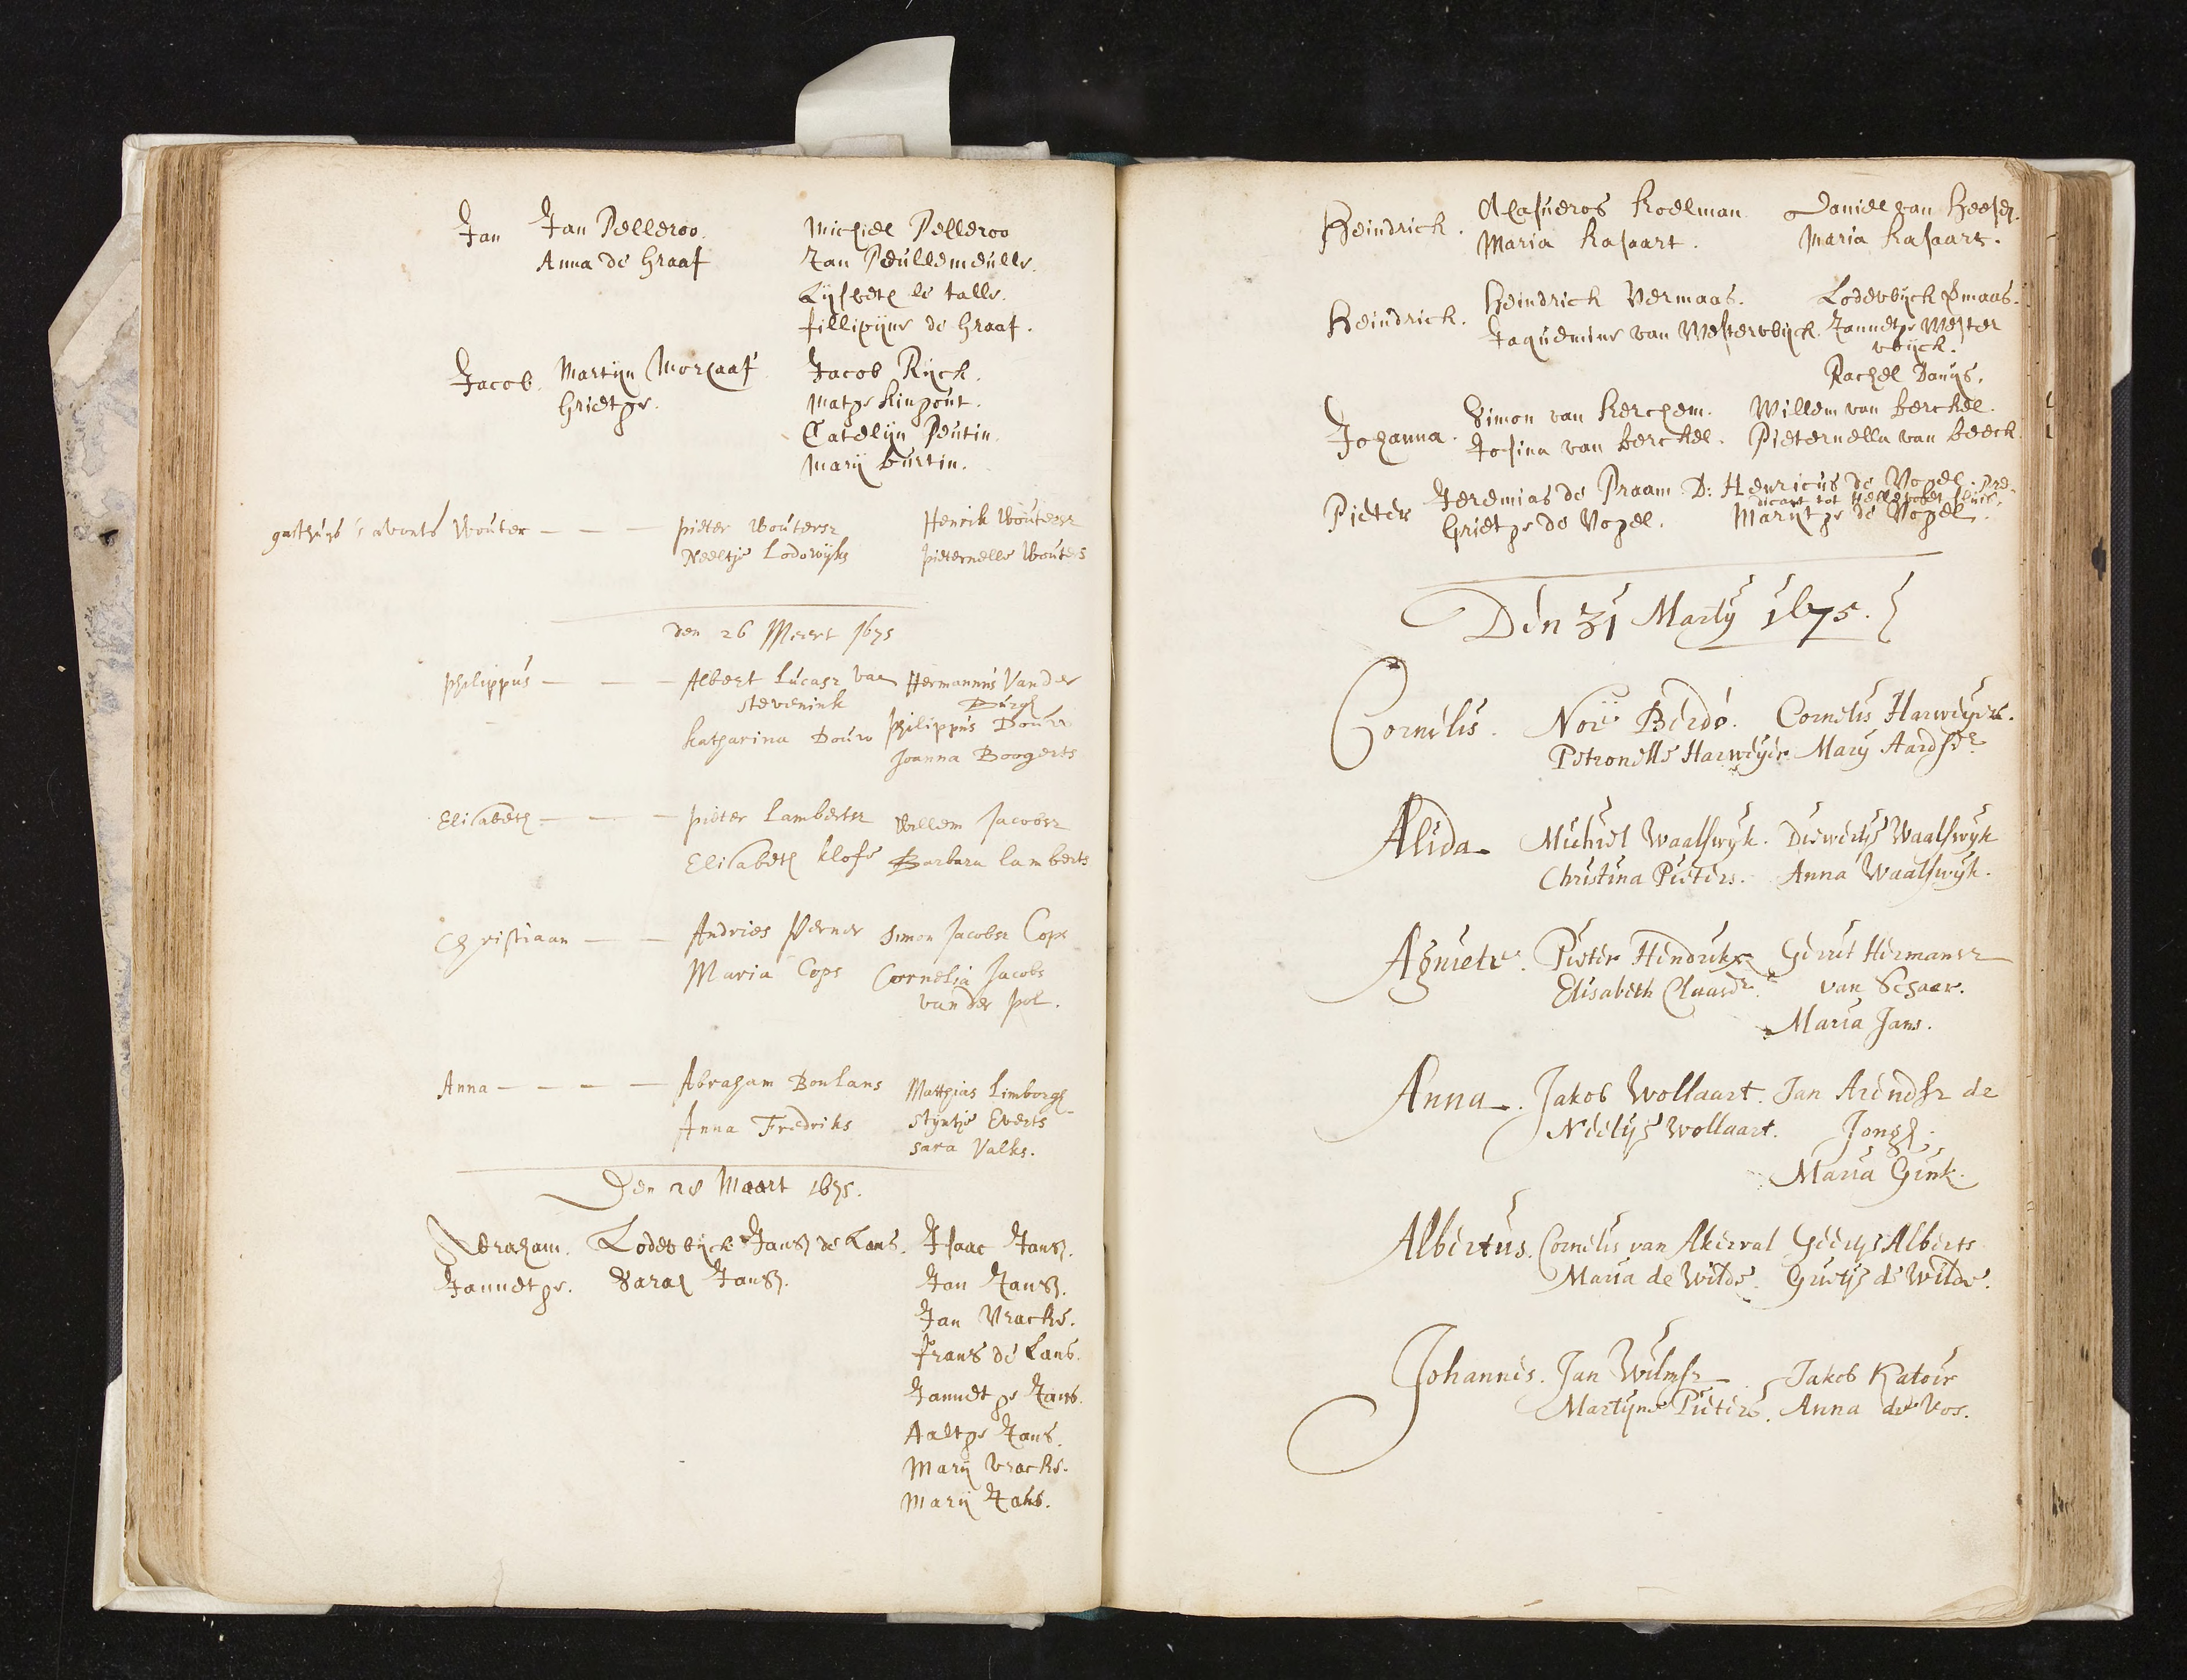 Jan Jan Pelleroo. Michiel Pelleroo
Anna de Graaf Jan Peullemeulle.
Lijsbeth le talle.
fillipijne de Graaf.
Jacob. Martijn Jacob Rijck.
Grietge. Matge Kingout.
Catelijn Peutin.
Marij burtin.
gasthuijs 's avonts Wouter — — — pieter Woutersz Henrik Woutersz
Neeltje Lodowijks pieternelle Wouters
den 26 Meert 1675
philippus — — — Albert Lucasz van Hermannus Vander
stevenink Burgh
Katharina Douw philippus Douw
Joanna Boogerts
Elisabeth — — — pieter Lambertsz Willem Jacobsz
Elisabeth klofs Barbara lamberts
Christiaan — — Andries Verner Simon Jacobsz Cops
Maria Cops Cornelia Jacobs
van der pol.
Anna — — — — Abraham Boulans Matthias Limborgh
Anna Fredriks Stijntje Everts
Sara Valks.
Den 28 Maart 1675.
Abraham. Lodewijck Jansz de Lans. Isaac Jansz.
Jannetge. Sarah Jansz. Jan Jansz.
Jan Vracke.
frans de Lans.
Jannetge Jans.
Aaltge Jans.
Marij Vracke.
Marij Jans.
Heindrich. Assueros Koelman Daniel van
Maria Kasaart. Maria Kasaart.
Heindrich. Heindrich Vermaas. Lodewijck Vmaas.
Jaquemine van Westerwijck. Jannetge Wester
wijck.
Rachel Danijs.
Johanna. Simon van Kerchem. Willem van berckel.
Josina van berckel. Pieternella van beeck.
Pieter Jeremias de Praam D: Henricus de Vogel. Pre-
dicant tot Hellevoet sluis.
Grietge de Vogel. Marijtge de Vogel.
Den 31 Martij 1675.
Cornelis. Noë Berdo. Cornelis Harweijer.
Petronelle Harweijer Marij Aardsdr
Alida. Michiel Waalswyk. Diewertje Waalswyk
Christina Pieters. Anna Waalswyk.
Agniete. Pieter Hendriksz Gerrit Hermansz
Elisabeth Claasdr. van Schaar.
Maria Jans.
Anna. Jakob Wollaart. Jan Arendsz de
Neeltje Wollaart. Jongh.
Maria Gink.
Albertus. Cornelis van Akerval Geertje Alberts
Maria de Wilde. Grietje de Wilde.
Johannes. Jan Wilmsz Jakob Katoir
Martijne Pieters. Anna de Vos.